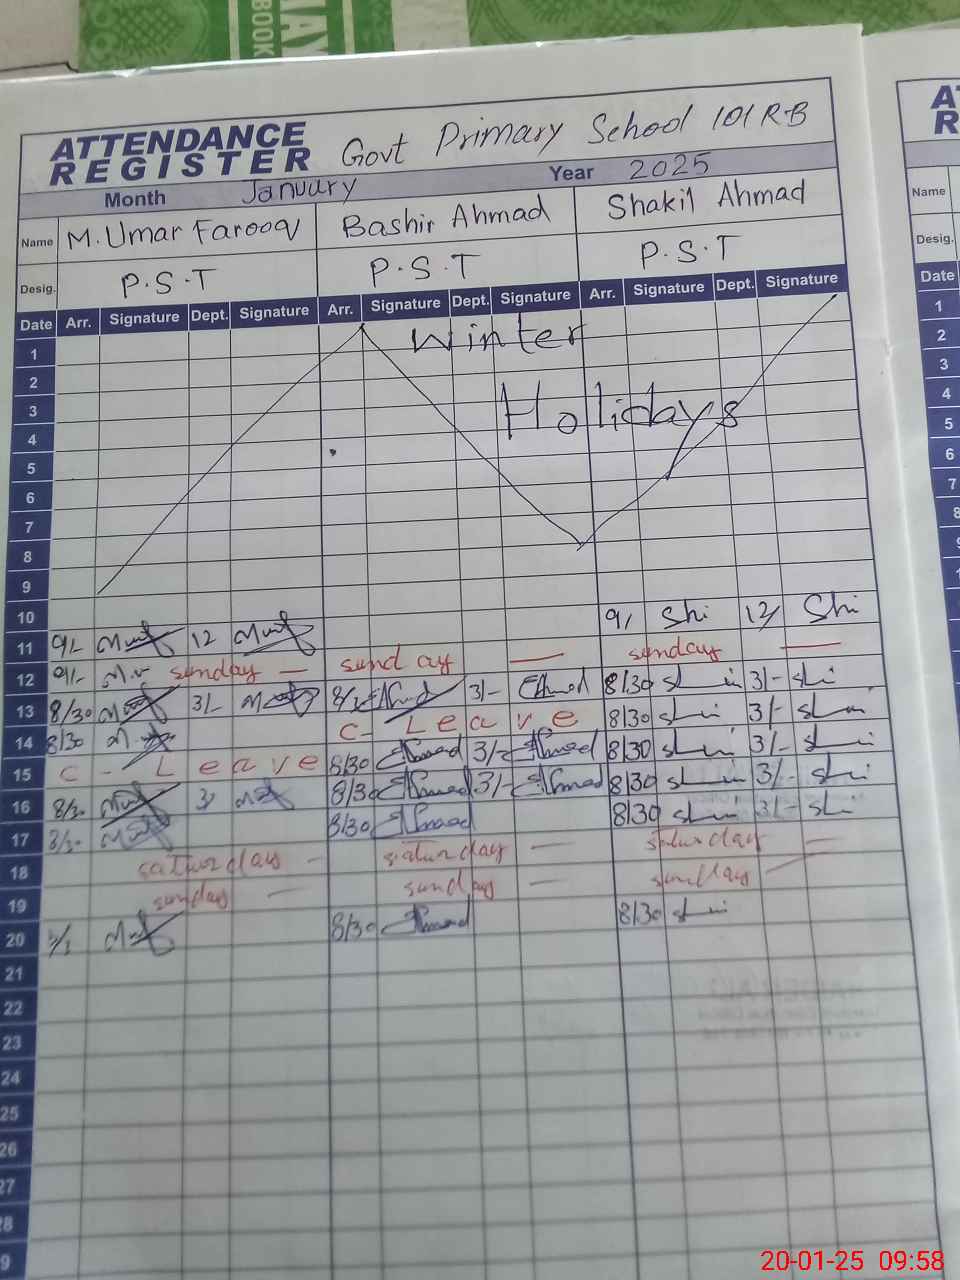 BOOK
ATTENDANCE REGISTER Govt Primary School 101 RB
Month January Year 2025
Name M. Umar Farooq Bashir Ahmad Shakil Ahmad
Desig. P.S.T P.S.T P.S.T
Date Arr. Signature Dept. Signature Arr. Signature Dept. Signature Arr. Signature Dept. Signature
1 Winter
2
3 Holidays
4
5
6
7
8
9
10
11 9/- 12 9/ Shi 12/ Shi
12 9/- sunday — sunday — sunday —
13 8/30 3/- 3/- Ahmad 8/30 3/-
14 8/30 C- Leave 8/30 3/-
15 C- Leave 8/30 Ahmad 3/- Ahmad 8/30 3/-
16 8/30 3/ 8/30 Ahmad 3/- Ahmad 8/30 3/-
17 8/30 8/30 Ahmad 8/30 3/-
18 saturday - saturday — saturday —
19 sunday — sunday — sunday —
20 8/30 Ahmad 8/30
21
22
23
24
25
26
27
28
9
Name
Desig.
Date
1
2
3
4
5
6
7
8
20-01-25 09:58